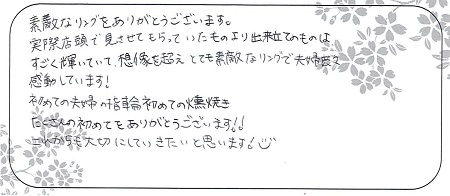 素敵なリングをありがとうございます。
実際店頭で見させてもらっていたものより出来立てのものは
すごく輝いていて、想像を超えとても素敵なリングで夫婦共々
感動しています!
初めての夫婦の指輪初めての燻焼き
たくさんの初めてをありがとうございます!!
これからも大切にしていきたいと思います!